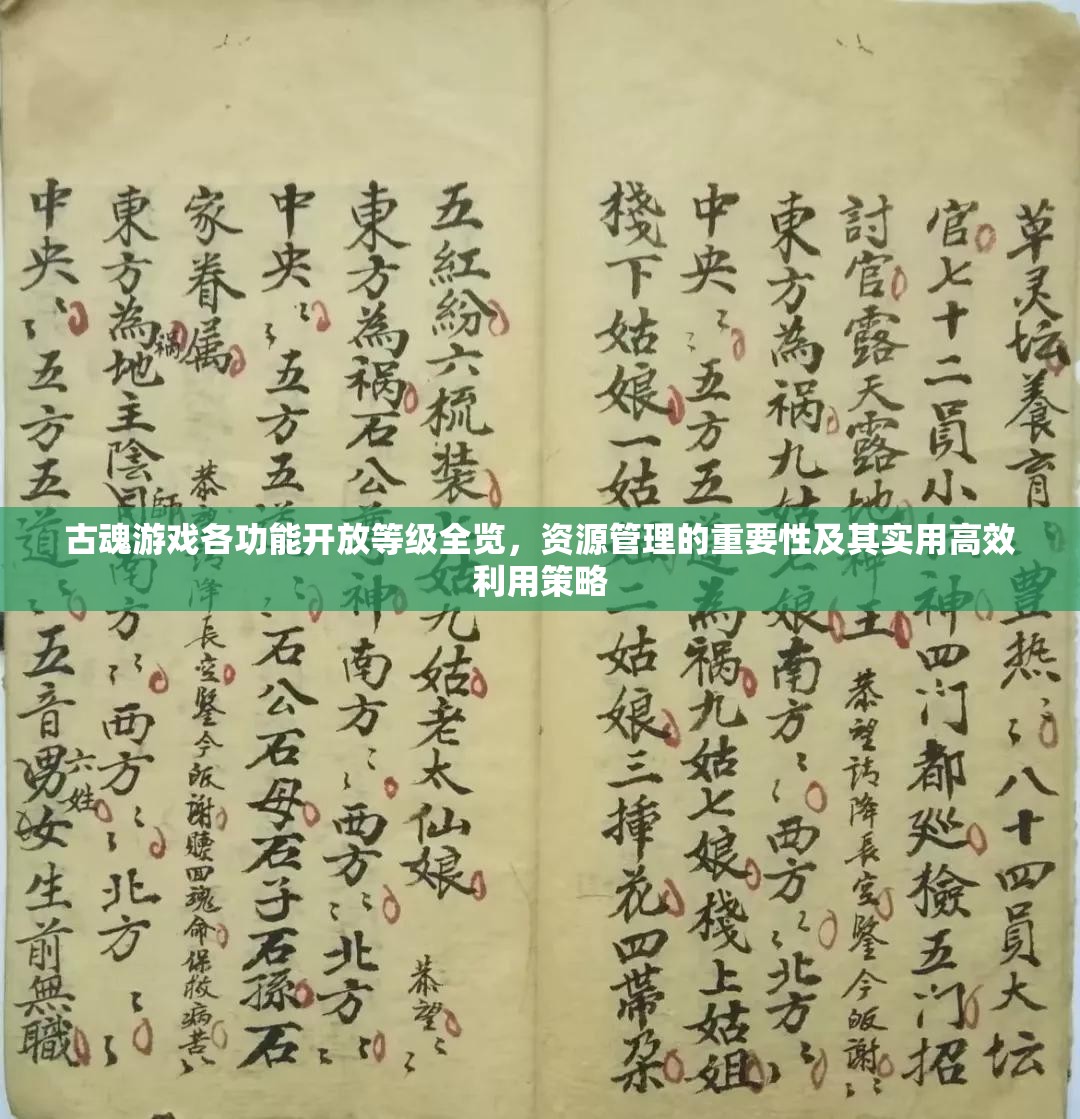 草灵坛養育豊热〻八十四員大坛
官七十二員小神四门都廵檢五门招
討官露天露地神王 恭望請降長空鑒今皈謝〻
東方為禍九姑七娘南方〻西方〻北方〻
中央〻五方五道為禍九姑七娘棧上姑姐
棧下姑娘一姑二姑娘三揷花四帶朶
五紅紛六梳装姑九姑老太仙娘 恭望〻
東方為禍石公神南方〻西方〻北方〻
中央〻五方五石公石母石子石孫石
家眷属 恭降長空鑒今皈謝賧囬魂命保救病苦〻
東方為禍地主陰師南方〻西方〻北方〻
中央〻五方五道〻五音男女六姓生前無職
古魂游戏各功能开放等级全览，资源管理的重要性及其实用高效
利用策略